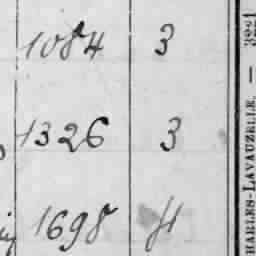 1084 3
1326 3
1698 4
HARLES-LAVAUZELLE. — 3221